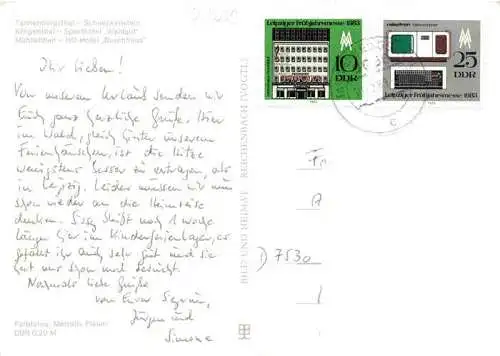 Tannenbergsthal – Schneckenstein
Klingenthal – Sporthotel "Waldgut"
Mühlleithen – HO-Hotel "Buschhaus"
Ihr Lieben!
Von unserem Urlaub senden wir
Euch ganz herzliche Grüße. Hier
im Wald, gleich hinter unserem
Ferienhäuschen, ist die Hitze
wenigstens besser zu ertragen, als
in Leipzig. Leider müssen wir nun
schon wieder an die Heimreise
denken. bleibt noch 1 Woche
länger hier im Kinderferienlager, es
gefällt ihr auch sehr gut und sie
hat uns schon mal besucht.
Nochmals liebe Grüße
von Euren
Jürgen und
Simone
DDR 0,20 M
BILD UND HEIMAT REICHENBACH (VOGTL)
Leipziger Frühjahrsmesse 1983
10
DDR
robotron
25
DDR
Leipziger Frühjahrsmesse 1983
c
Fr.
A
7530